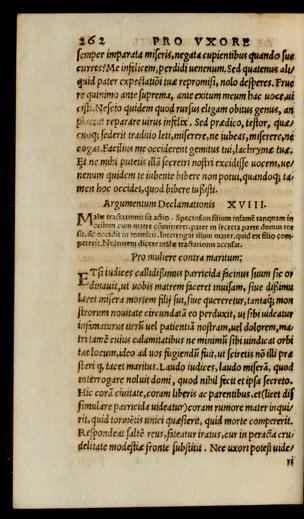 262 PRO VXORE
semper imparata miseris, negata cupientibus quando suc
curres? Me infilicem, perdidi uenenum. Sed quatenus ali/
quid pater expectationi tuæ repromisi, nolo desperes. Frue
re quinimo ante suprema, ante exitum meum hac uoce, ui
cisti. Nescio quidem quod rursus eligam obitus genus, an
placeat reparare uirus infelix. Sed prædico, testor, quæ/
cunq; sederit traditio leti, miserere, ne iubeas, miserere, ne
cogas. Facilius me occiderent gemitus tui, lachrymæ tuæ.
Et ne mihi putetis illā secreiri nostri excidisse uocem, ue/
nenum quidem te iubente bibere non potui, quandoq; ta/
men hoc occidet, quod bibere iussisti.
Argumentum Declamationis XVIII.
Malæ tractationis sit actio. Speciosum filium infamē tanquam in
cestum cum matre cōmitteret, pater in secreta parte domus tor
sit, & occidit in tormētis. Interrogat illum mater, quid ex filio com
pererit. Nolentem dicere malæ tractationis accusat.
Pro muliere contra maritum:
ETsi iudices callidissimus parricida facinus suum sic or
dinauit, ut uobis matrem faceret inuisam, siue dissimu
laret misera mortem filij sui, siue quereretur, tantaq; mon
strorum nouitate circundatā eo perduxit, ut sibi uideatur
infamaturus iterū uel patientiā nostram, uel dolorem, ma/
tri tamē cuius calamitatibus ne minimū sibi uindicat orbi
tas locum, ideo ad uos fugiendū fuit, ut sciretis nō illi præ
stari q, tacet maritus. Laudo iudices, laudo miserā, quod
interrogare noluit domi, quod nihil fecit et ipsa secreto.
Hic corā ciuitate, coram liberis ac parentibus, et (licet dis
simulare parricida uideatur) coram rumore mater inqui/
rit, quid tormētis unici quæsierit, quid morte compererit.
Respondeat saltē reus, fateatur iratus, cur in peracta cru/
delitate modestiæ fronte substitit. Nec uxori potest uide/
ri